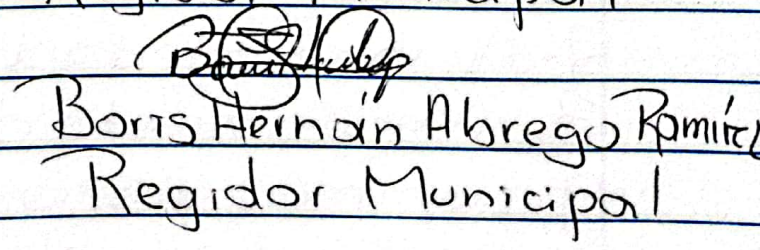 Boris Hernán Abrego Ramírez
Regidor Municipal